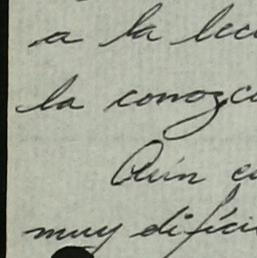 a la lec
la conozc
Aún e
muy difíci